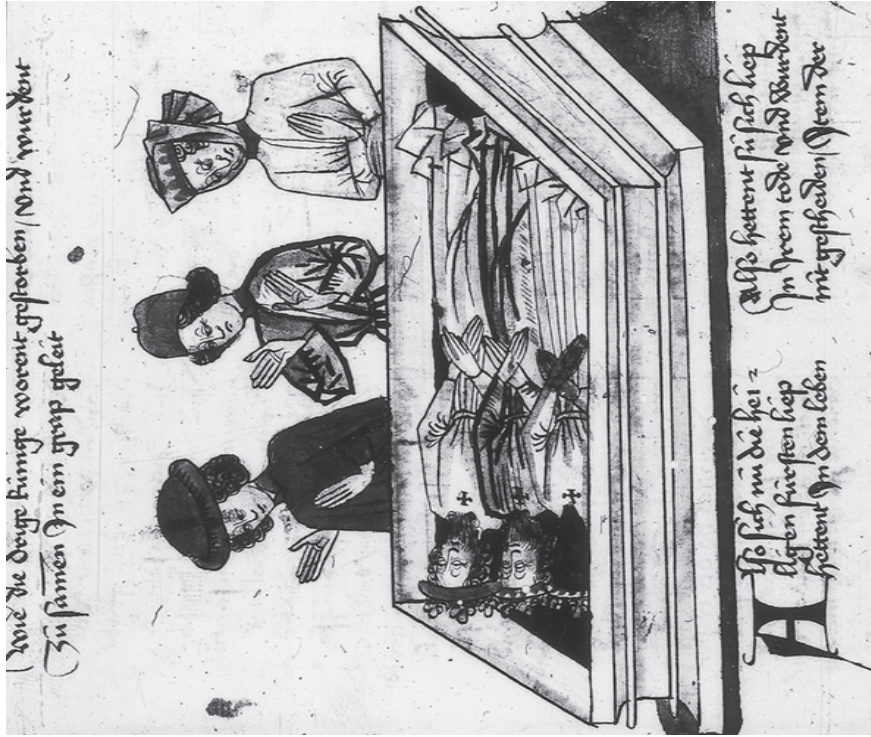 wie die drige künige worent gestorben / vnd wurdent
Zu samen In ein grap geleit
Also sich nu die hei=
ligen fürsten liep
hettent In dem leben
Also hettent su sich liep
In Irem tode vnd wurdent
nit gescheiden / Item der